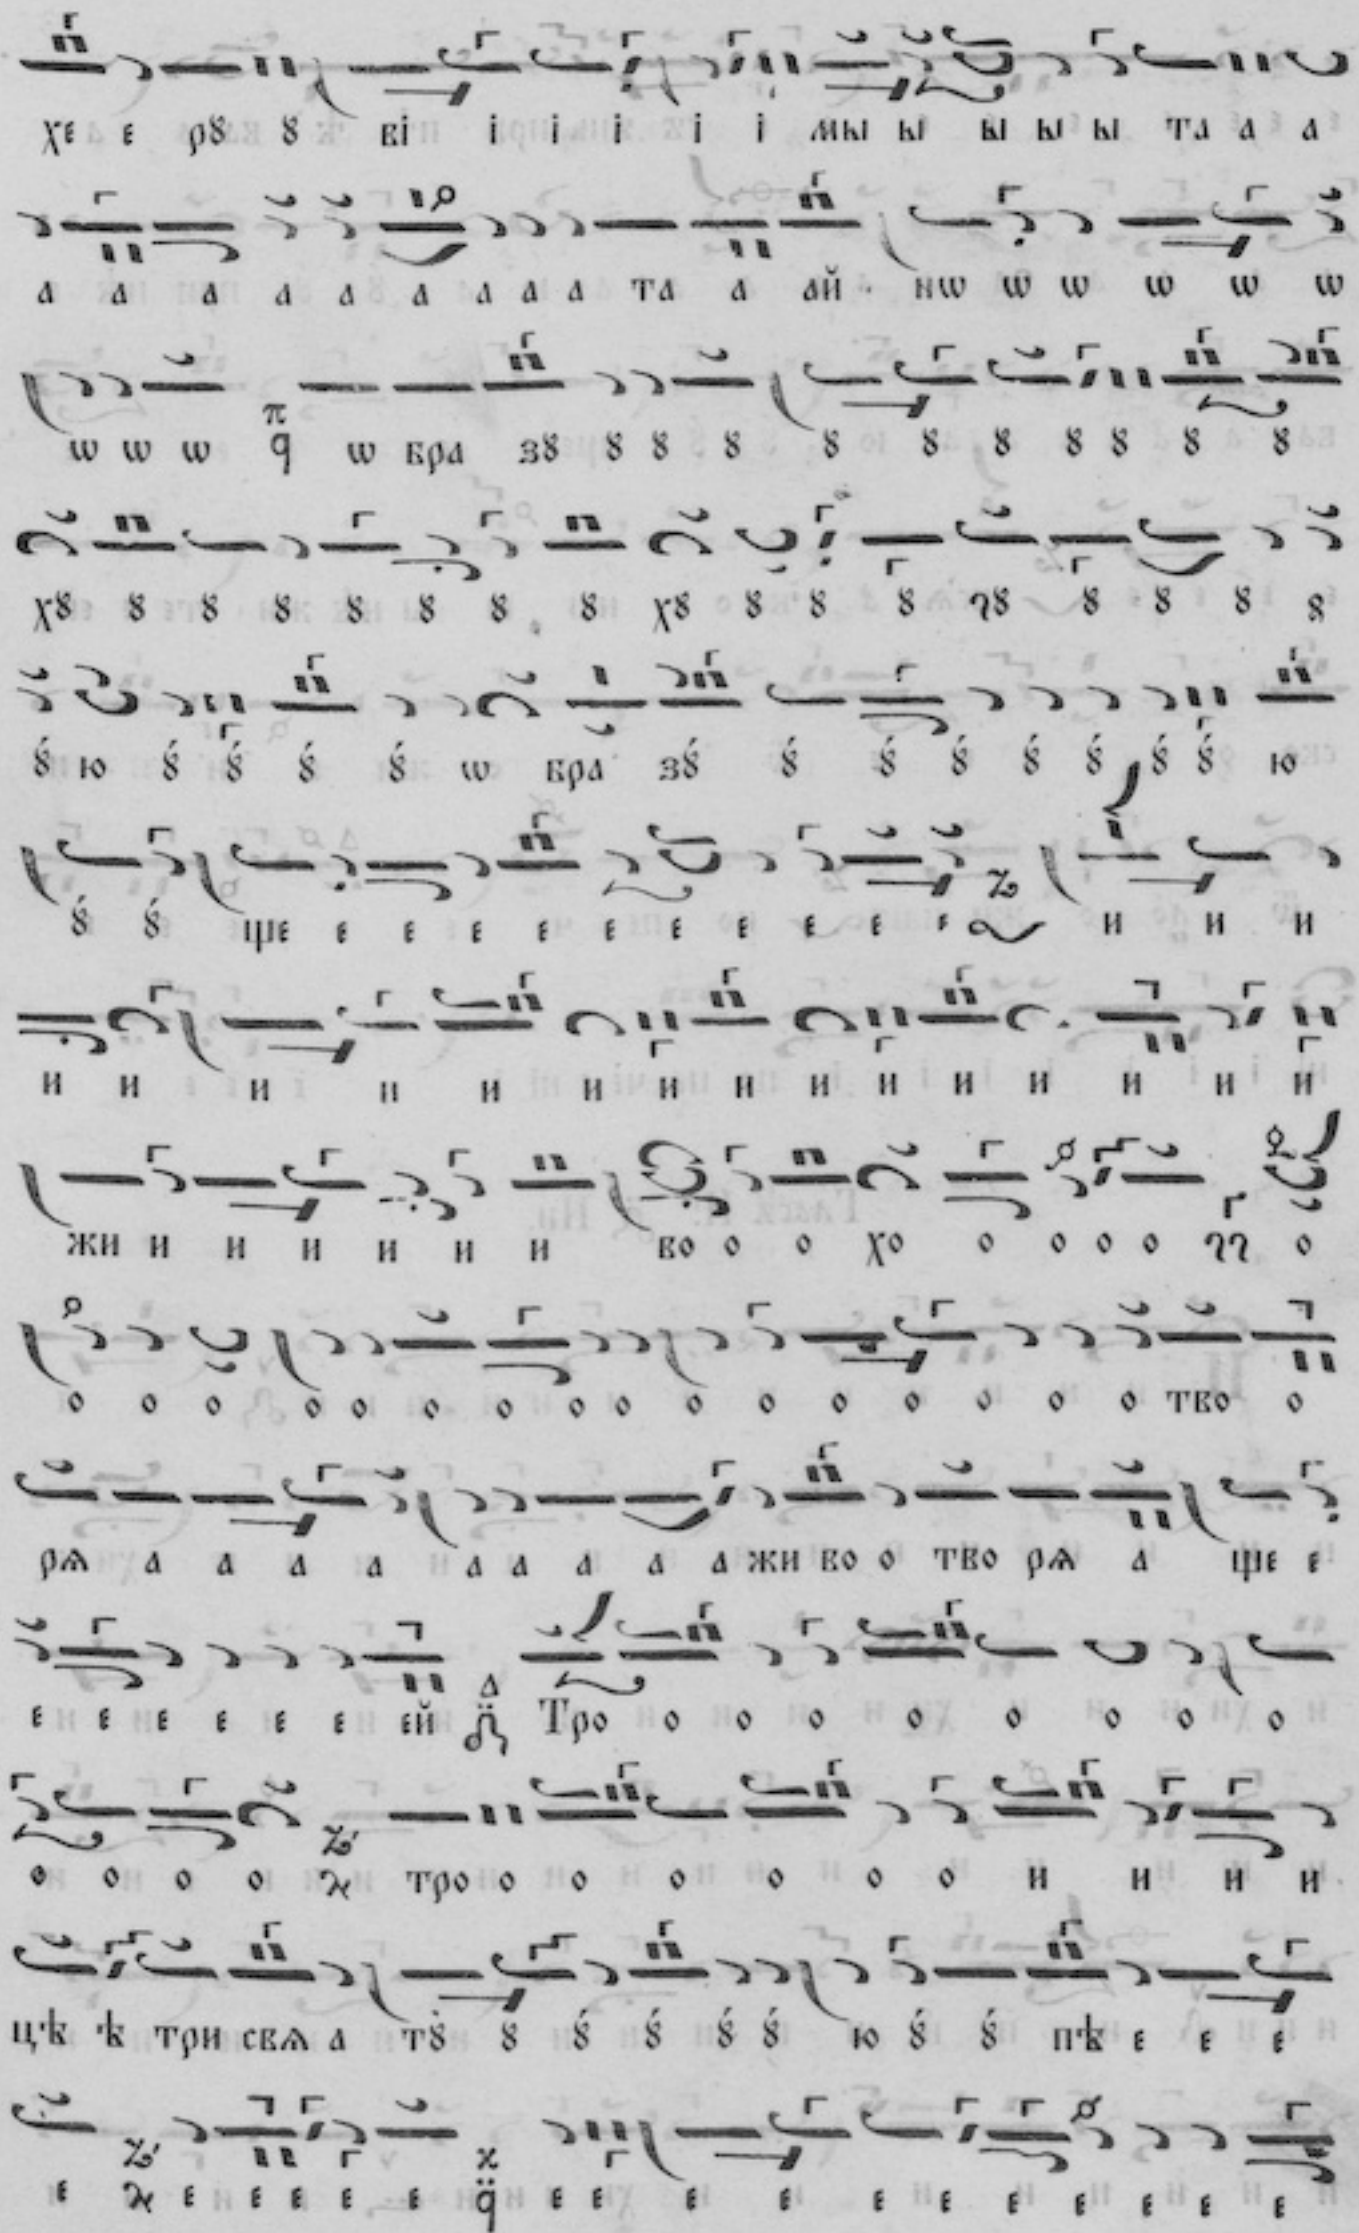 хе е рꙋ ꙋ ві і і і і і мы ы ы ы ы та а а
а а а а а а а а а та а ай нѡ ѡ ѡ ѡ ѡ ѡ
ѡ ѡ ѡ π q ѡ бра зꙋ ꙋ ꙋ ꙋ ꙋ ꙋ ꙋ ꙋ ꙋ ꙋ ꙋ
хꙋ ꙋ ꙋ ꙋ ꙋ ꙋ ꙋ ꙋ хꙋ ꙋ ꙋ ꙋ ꙋ ꙋ ꙋ ꙋ
ꙋ́ ю ꙋ́ ꙋ́ ꙋ́ ꙋ́ ѡ бра зꙋ́ ꙋ́ ꙋ́ ꙋ́ ꙋ́ ꙋ́ ꙋ́ ꙋ́ ю
ꙋ́ ꙋ́ ще е е е е е е е е е е и и и
и и и и и и и и и и и и и и и
жи и и и и и и во о о хо о о о о о
о о о о о о о о о о о о о о о о тво о
рѧ а а а а а а а а а жи во о тво рѧ а ще е
е е е е е е ей Δ Тро о о о о о о о о
о о о о тро о о о о о о и и и и
цѣ ѣ три свѧ а тꙋ́ ꙋ́ ꙋ́ ꙋ́ ꙋ́ ꙋ́ ю ꙋ́ ꙋ́ пѣ е е е
е е е е е е q е е е е е е е е е е е